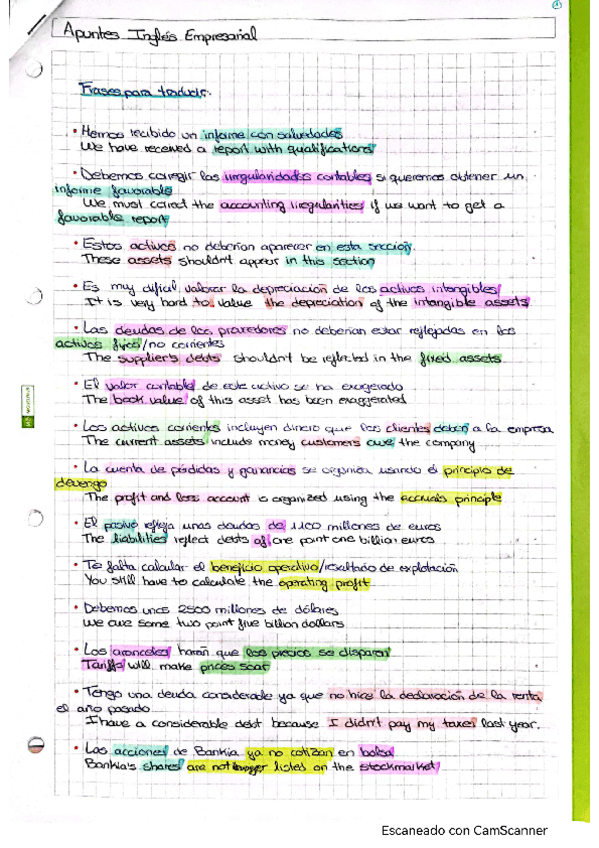 Apuntes Inglés Empresarial
Frases para traducir.
• Hemos recibido un informe con salvedades
We have received a report with qualifications
• Debemos corregir las irregularidades contables si queremos obtener un
informe favorable
We must correct the accounting irregularities if we want to get a
favorable report
• Estos activos no deberían aparecer en esta sección
These assets shouldn't appear in this section
• Es muy difícil valorar la depreciación de los activos intangibles
It is very hard to value the depreciation of the intangible assets
• Las deudas de los proveedores no deberían estar reflejadas en los
activos fijos/no corrientes
The supplier's debts shouldn't be reflected in the fixed assets
• El valor contable de este activo se ha exagerado
The book value of this asset has been exaggerated
• Los activos corrientes incluyen dinero que los clientes deben a la empresa
The current assets include money customers owe the company
• La cuenta de pérdidas y ganancias se organiza usando el principio de
devengo
The profit and loss account is organized using the accruals principle
• El pasivo refleja unas deudas de 1.100 millones de euros
The liabilities reflect debts of one point one billion euros
• Te falta calcular el beneficio operativo/resultado de explotación
You still have to calculate the operating profit
• Debemos unos 2500 millones de dólares
We owe some two point five billion dollars
• Los aranceles harán que los precios se disparen
Tariffs will make prices soar
• Tengo una deuda considerable ya que no hice la declaración de la renta
el año pasado
I have a considerable debt because I didn't pay my taxes last year.
• Las acciones de Bankia ya no cotizan en bolsa
Bankia's shares are not longer listed on the stockmarket
Escaneado con CamScanner